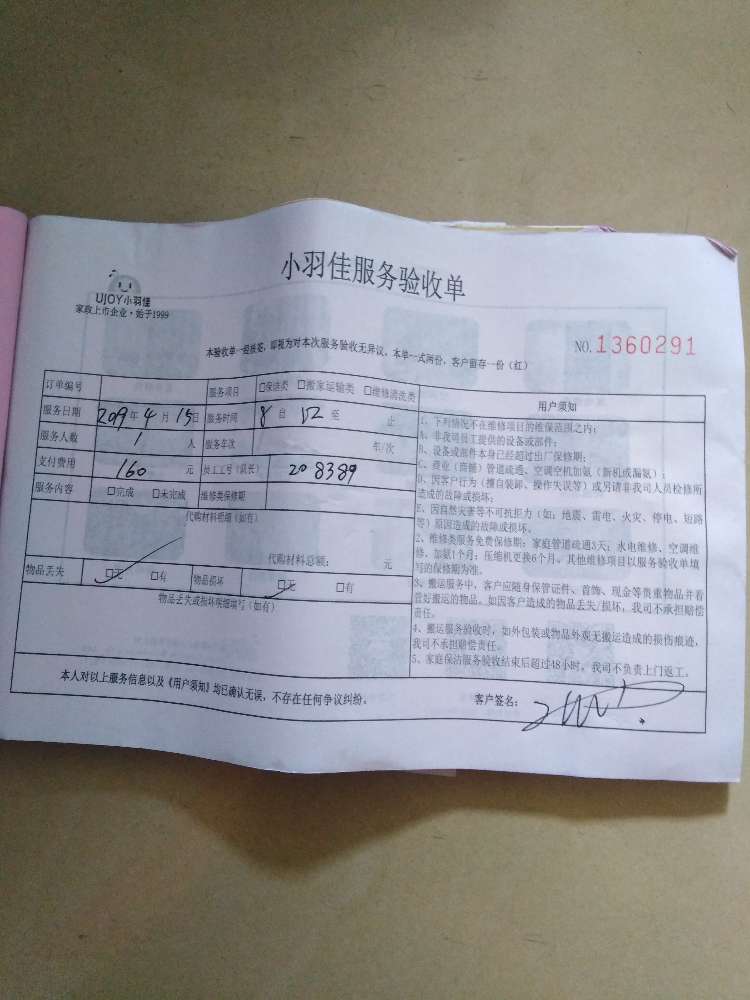 小羽佳服务验收单
UJOY小羽佳
家政上市企业·始于1999
本验收单一经接签，即视为对本次服务验收无异议。本单一式两份，客户留存一份（红）
NO.1360291
订单编号 服务项目 □保洁类 □搬家运输类 □维修清洗类
服务日期 2019年4月15日 服务时间 8自 12至 止
服务人数 1 人 服务车次 年/次
支付费用 160 元 员工工号（队长） 208389
服务内容 □完成 □未完成 维修类保修期
代购材料明细（如有）
代购材料总额： 元
物品丢失 □无 □有 物品损坏 □无 □有
物品丢失或损坏明细填写（如有）
用户须知
1、下列情况不在维修项目的维保范围之内：
A、非我司员工提供的设备或部件；
B、设备或部件本身已经超过出厂保修期；
C、商业（商铺）管道疏通、空调空机加氨（新机或漏氨）；
D、因客户行为（擅自装卸、操作失误等）或另请非我司人员检修所
造成的故障或损坏；
E、因自然灾害等不可抗拒力（如：地震、雷电、火灾、停电、短路
等）原因造成的故障或损坏。
2、维修类服务免费保修期：家庭管道疏通3天；水电维修、空调维
修、加氨1个月；压缩机更换6个月。其他维修项目以服务验收单填
写的保修期为准。
3、搬运服务中，客户应随身保管证件、首饰、现金等贵重物品并看
管好搬运的物品。如因客户造成的物品丢失/损坏，我司不承担赔偿
责任。
4、搬运服务验收时，如外包装或物品外观无搬运造成的损伤痕迹，
我司不承担赔偿责任。
5、家庭保洁服务验收结束后超过48小时，我司不负责上门返工。
本人对以上服务信息以及《用户须知》均已确认无误，不存在任何争议纠纷。
客户签名：